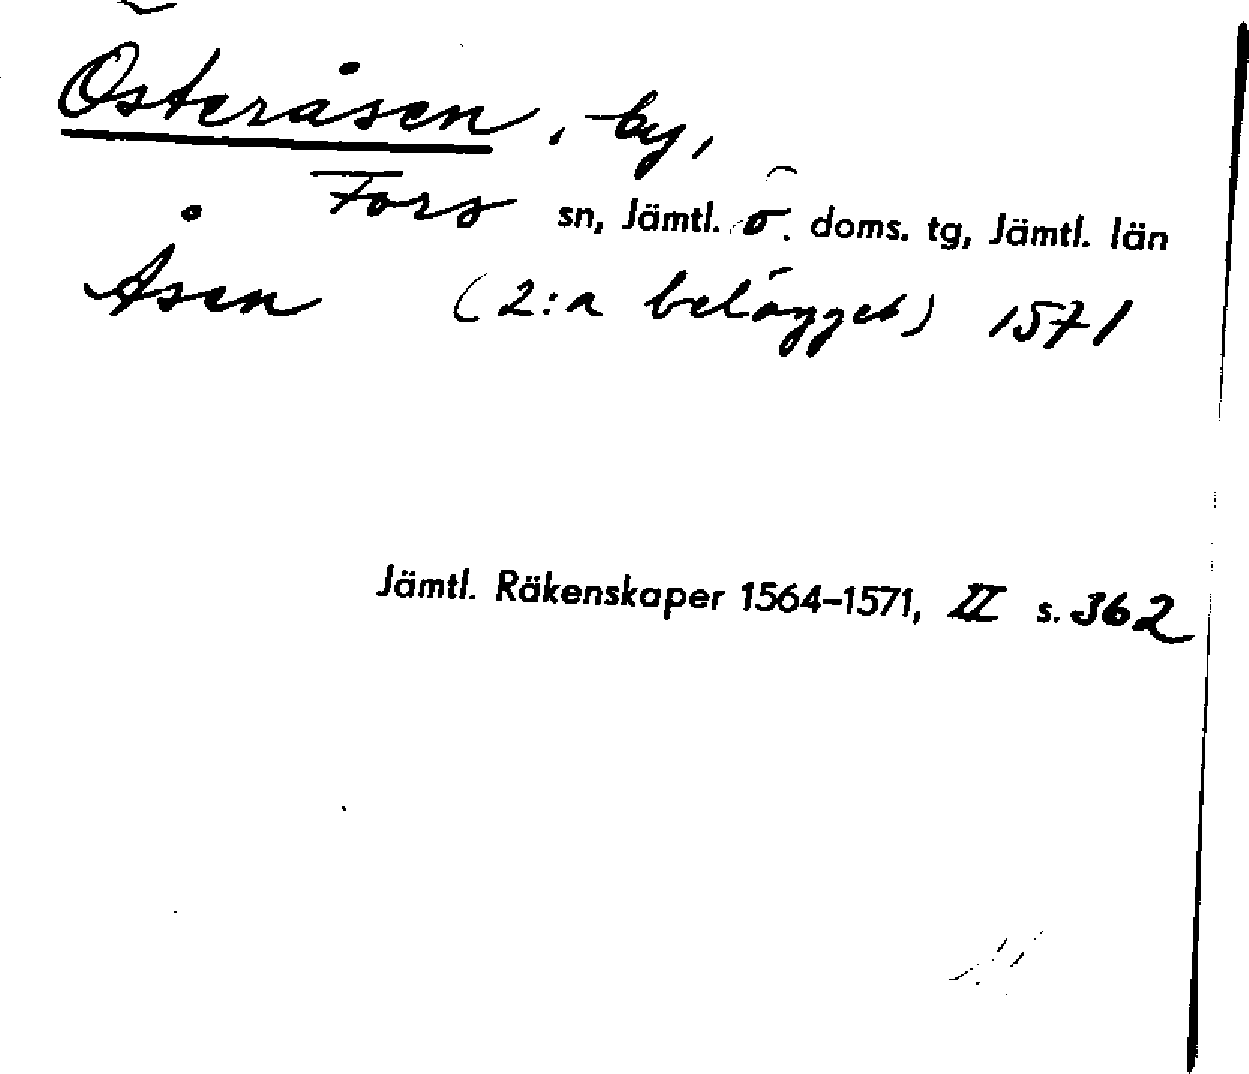 Österåsen, by,
Fors sn, Jämtl. ö. doms. tg, Jämtl. län
Åsen (2:a belägget) 1571
Jämtl. Räkenskaper 1564–1571, II s. 362